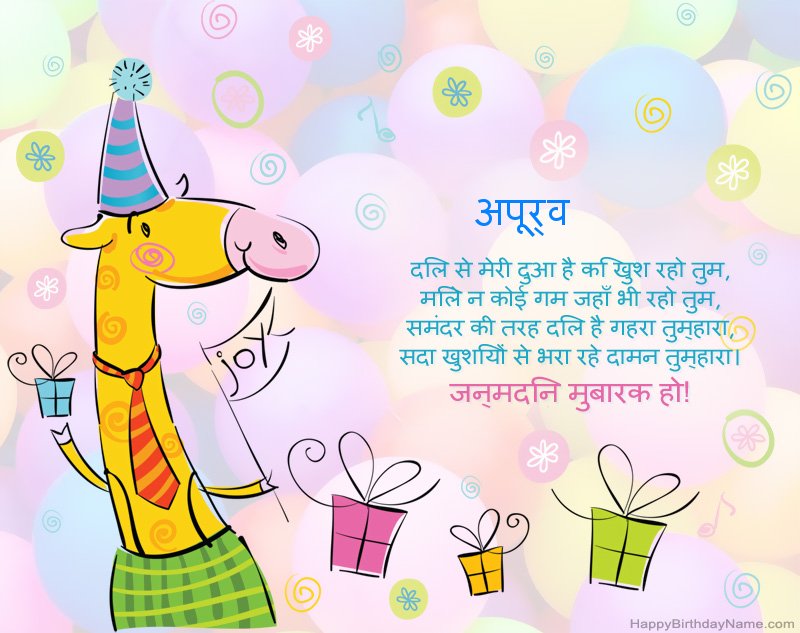 अपूर्व
दिल से मेरी दुआ है कि खुश रहो तुम,
मिले न कोई गम जहाँ भी रहो तुम,
समंदर की तरह दिल है गहरा तुम्हारा,
सदा खुशियों से भरा रहे दामन तुम्हारा।
जन्मदिन मुबारक हो!
joy
HappyBirthdayName.com